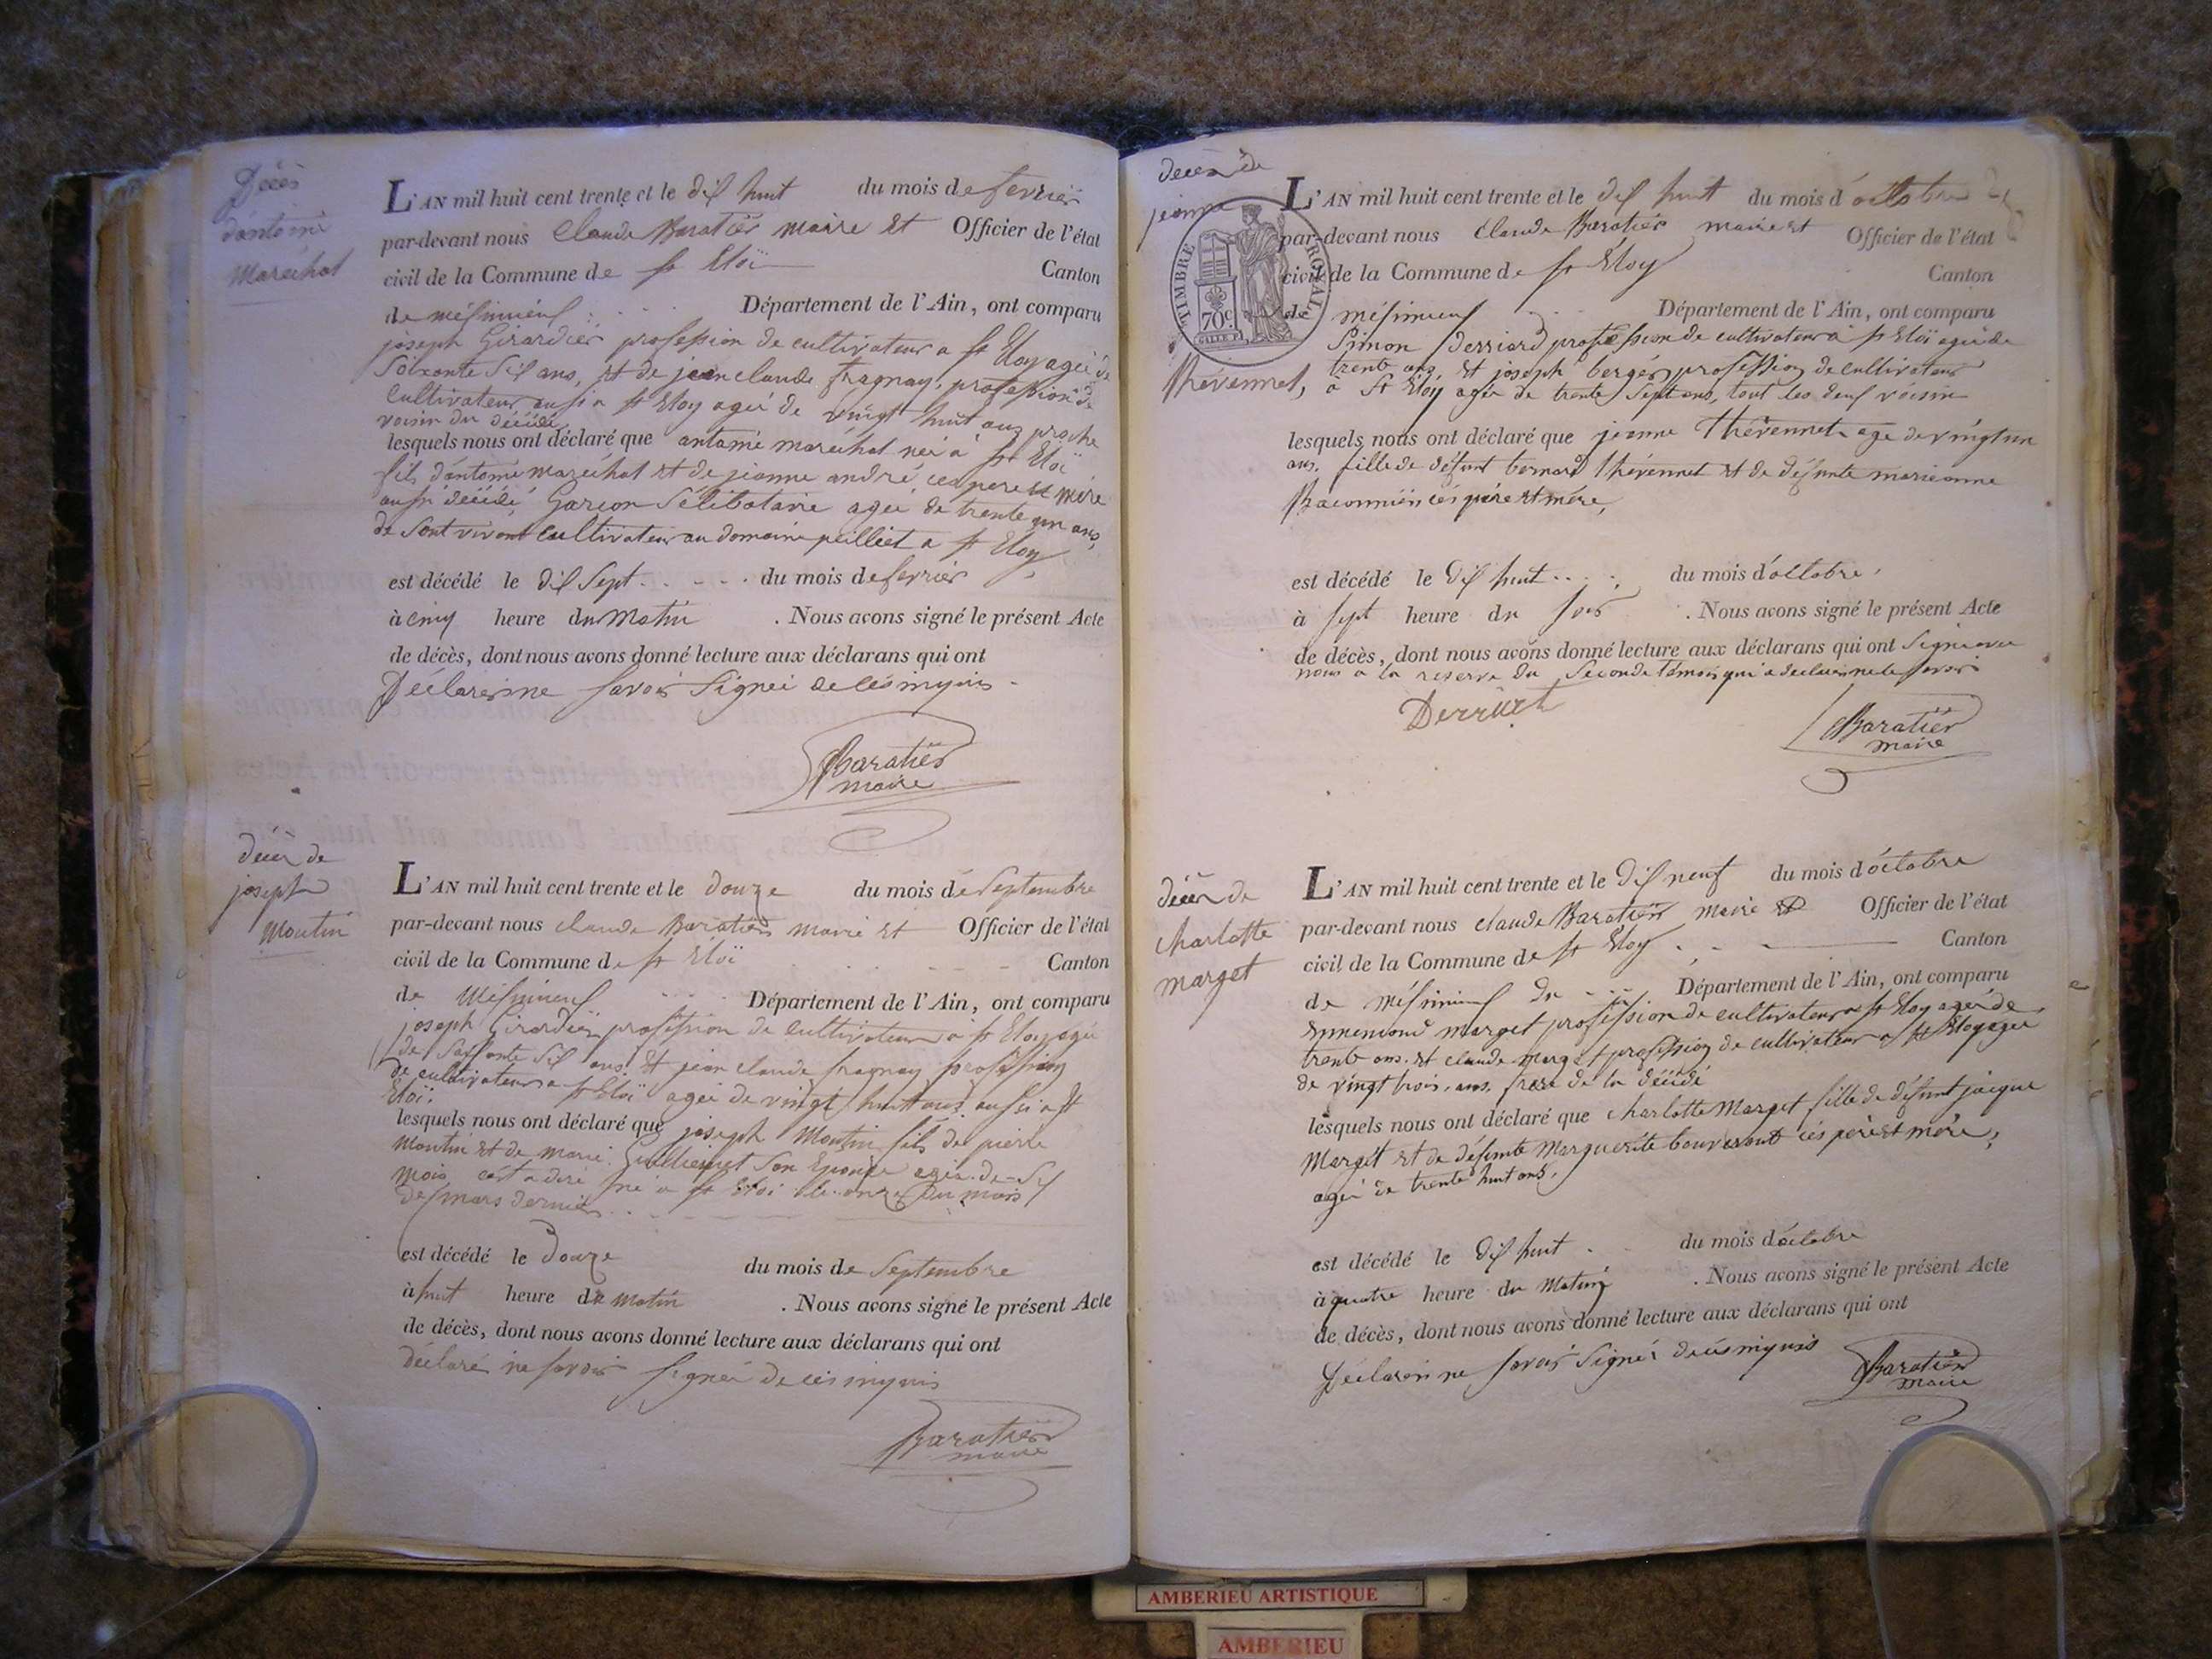 Décès
d'antoine
Maréchal
L'AN mil huit cent trente et le dix huit du mois de fevrier
par-devant nous Claude Baratier maire et Officier de l'état
civil de la Commune de st Eloi Canton
de meximieux Département de l'Ain, ont comparu
joseph Girardier profession de cultivateur a st Eloy agée de
Soixante Six ans, et de jean claude fragnay, profession de
Cultivateur aussi a st Eloy agée de vingt huit ans proche
voisin du décédé
lesquels nous ont déclaré que antoine maréchal née à st Eloi
fils d'antoine maréchal et de jeanne andré ces pere et mère
aussi décédé Garçon Sélibataire agée de trente un ans,
de Sont vivant Cultivateur au domaine peilliet a st Eloy
est décédé le dix Sept du mois de fevrier
à cinq heure du Matin . Nous avons signé le présent Acte
de décès, dont nous avons donné lecture aux déclarans qui ont
Déclarer ne savoir Signée de ces inquis
Baratier
maire
décès de
joseph
Moutin
L'AN mil huit cent trente et le douze du mois de Septembre
par-devant nous claude Baratier maire et Officier de l'état
civil de la Commune de st Eloï Canton
de Meximieux Département de l'Ain, ont comparu
joseph Girardier profession de cultivateur a st Eloy agée
de Soixante Six ans et jean claude fragnay profession
de cultivateur a st Eloï agée de vingt huit ans aussi a st
Eloï.
lesquels nous ont déclaré que joseph Moutin fils de pierre
Moutin et de marie Son Epouse agée de Six
mois cest a dire né a st Eloi le onze du mois
de mars dernier
est décédé le Douze du mois de Septembre
à huit heure du matin . Nous avons signé le présent Acte
de décès, dont nous avons donné lecture aux déclarans qui ont
déclaré ne savoir signée de ces inquis
Baratier
maire
décès de
jeanne
TIMBRE ROYAL
70c.
Thévennet,
L'AN mil huit cent trente et le dix huit du mois d'octobre
par-devant nous Claude Baratier maire et Officier de l'état
civil de la Commune de st Eloy Canton
de méximieux Département de l'Ain, ont comparu
Simon profession de cultivateur a st Eloï agée de
trente ans, et joseph berger profession de cultivateur
a St Eloy agée de trente Sept ans, tout les deux voisin
lesquels nous ont déclaré que jeanne Thévennet age de vingt un
ans. fille de défunt bernard thévennet et de défunte marieanne
ces père et mère,
est décédé le dix huit du mois d'octobre,
à sept heure du soir . Nous avons signé le présent Acte
de décès, dont nous avons donné lecture aux déclarans qui ont Signé avec
nous a la reserve du Seconde témois qui a declarer ne le savoir
Baratier
maire
décès de
Charlotte
marget
L'AN mil huit cent trente et le dix neuf du mois d'octobre
par-devant nous claude Baratier maire et Officier de l'état
civil de la Commune de st Eloy Canton
de méximieux Département de l'Ain, ont comparu
marget profession de cultivateur a st Eloy agée de
trente ans. et claude marget profession de cultivateur a st Eloy agée
de vingt trois. ans, frere de la décédé
lesquels nous ont déclaré que charlotte Marget fille de défunt jaque
Marget et de défunte Marguerite ces père et mère,
agée de trente huit ans.
est décédé le dix huit du mois d'octobre
à quatre heure du Matin . Nous avons signé le présent Acte
de décès, dont nous avons donné lecture aux déclarans qui ont
Déclarer ne savoir Signée de ces inquis
Baratier
maire
AMBERIEU ARTISTIQUE
AMBERIEU